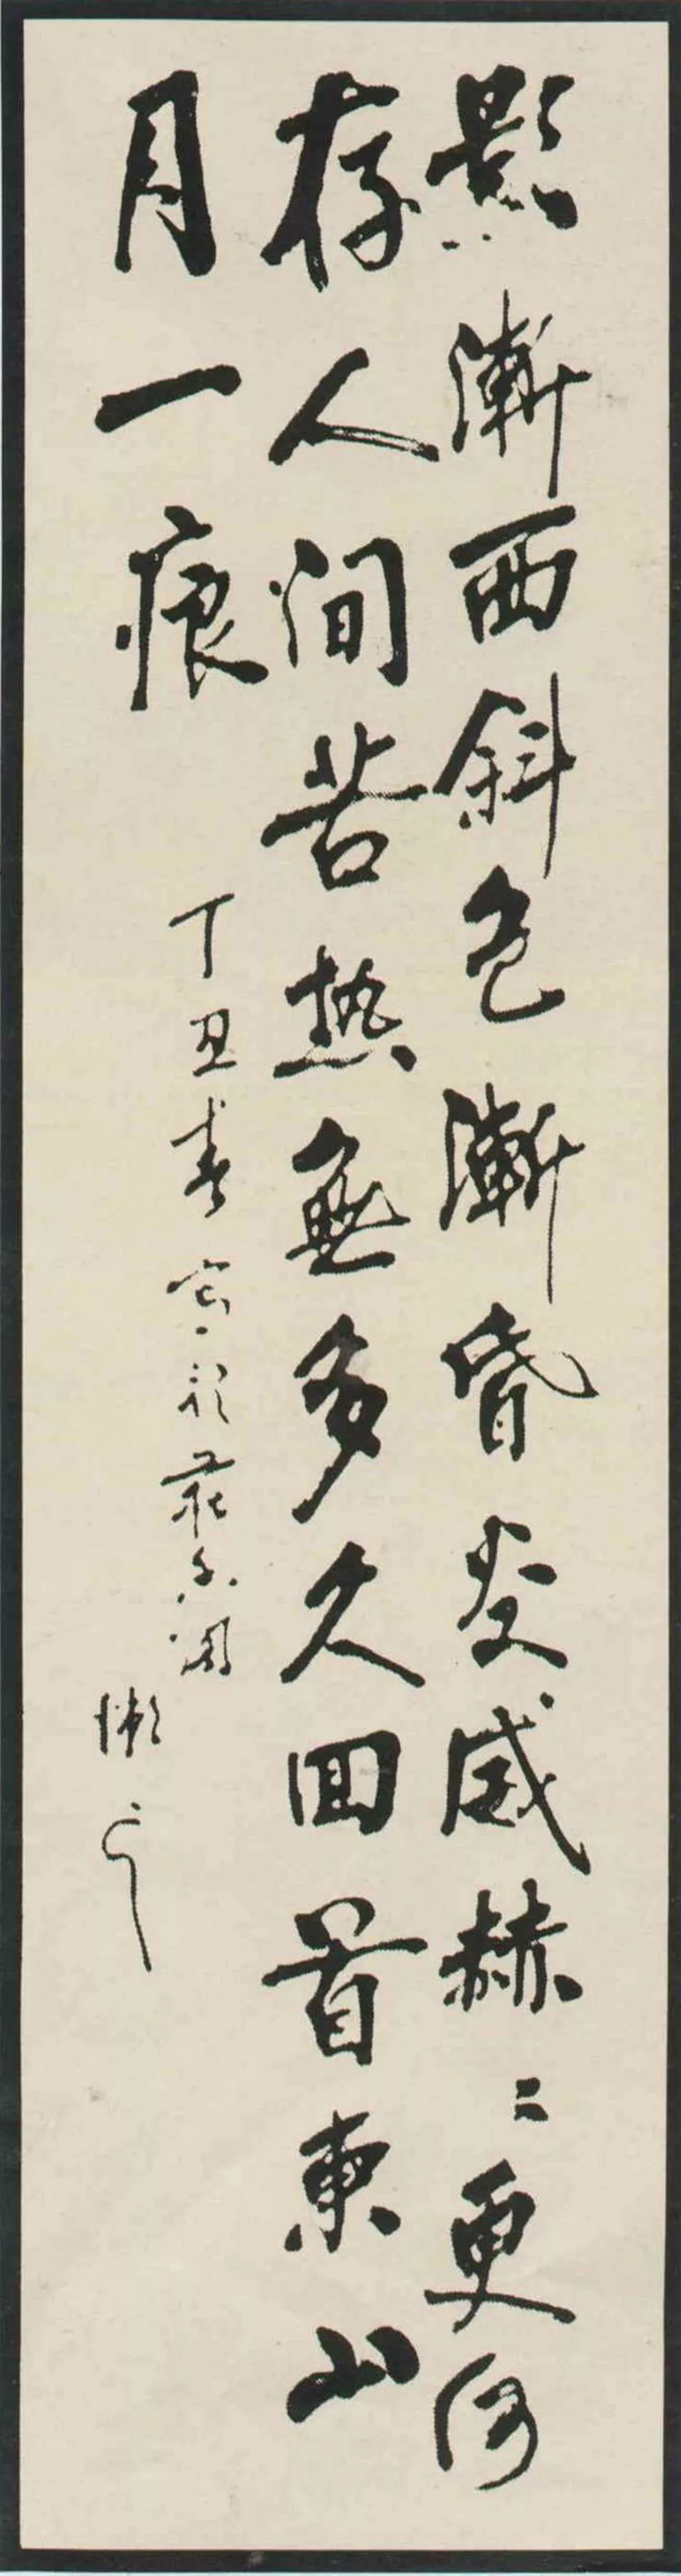 影漸西斜色漸昏炎威赫々更何
存人間苦热無多久回首東山
月一痕
丁丑春